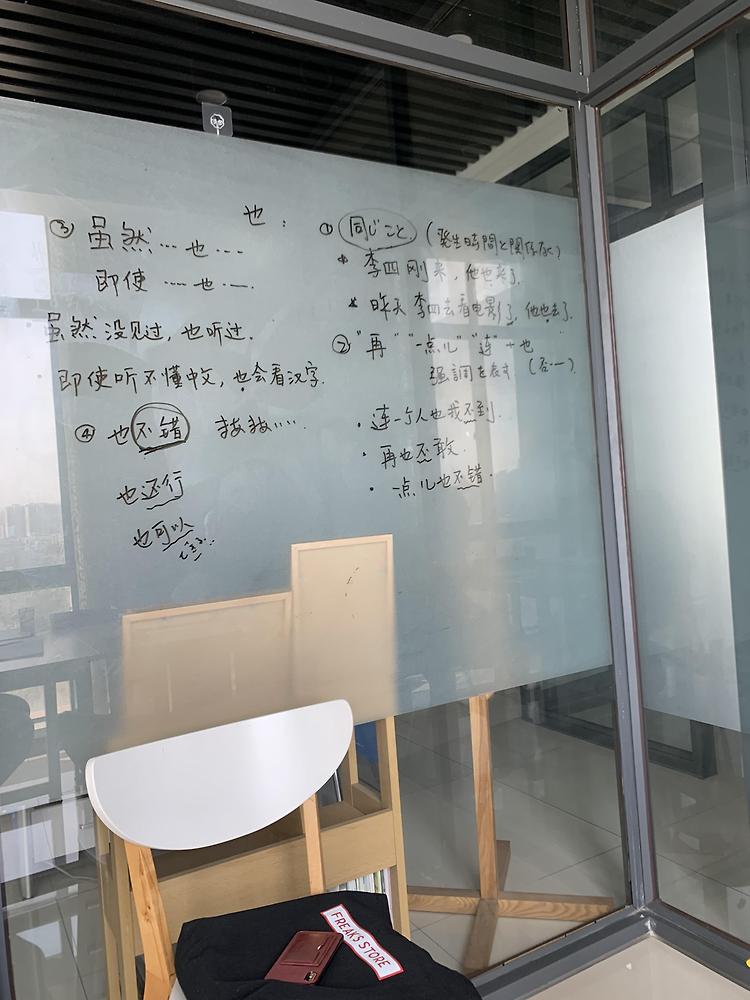 也：
① 同じこと (発生時間と関係なく)
* 李四刚来，他也来了.
* 昨天李四去看电影了，他也去了.
② "再" "一点儿" "连" + 也
强調を表す (否一).
· 连一个人也找不到.
· 再也不敢.
· 一点儿也不错.
③ 虽然……也……
即使……也……
虽然没见过，也听过.
即使听不懂中文，也会看汉字.
④ 也不错 まあまあ……
也还行
也可以
できる..
FREAKS STORE